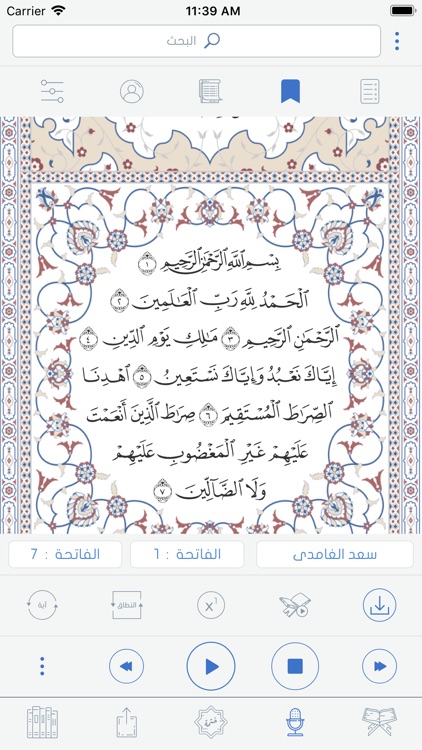 Carrier 11:39 AM
البحث
بِسْمِ ٱللَّهِ ٱلرَّحْمَٰنِ ٱلرَّحِيمِ ١
ٱلْحَمْدُ لِلَّهِ رَبِّ ٱلْعَٰلَمِينَ ٢
ٱلرَّحْمَٰنِ ٱلرَّحِيمِ ٣ مَٰلِكِ يَوْمِ ٱلدِّينِ ٤
إِيَّاكَ نَعْبُدُ وَإِيَّاكَ نَسْتَعِينُ ٥ ٱهْدِنَا
ٱلصِّرَٰطَ ٱلْمُسْتَقِيمَ ٦ صِرَٰطَ ٱلَّذِينَ أَنْعَمْتَ
عَلَيْهِمْ غَيْرِ ٱلْمَغْضُوبِ عَلَيْهِمْ
وَلَا ٱلضَّآلِّينَ ٧
سعد الغامدى الفاتحة : 1 الفاتحة : 7
x1 النطاق آية